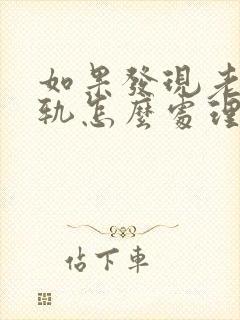 如果發現老
軌怎麼處理
佔下車